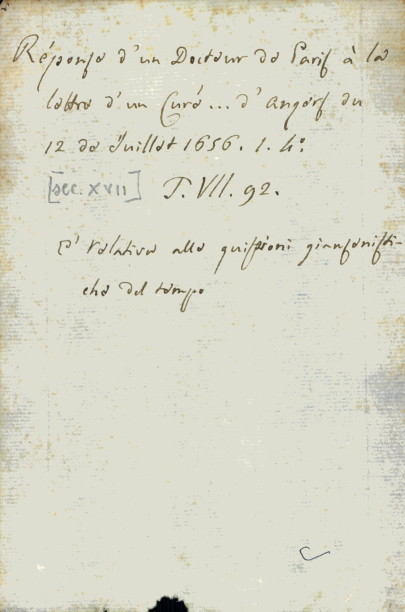 Réponse d'un Docteur de Paris à la
lettre d'un Curé... d'Angers du
12 de Juillet 1656. 1. 4°.
[sec. XVII] T. VII. 92.
E' relativa alle quistioni giansenisti-
che del tempo